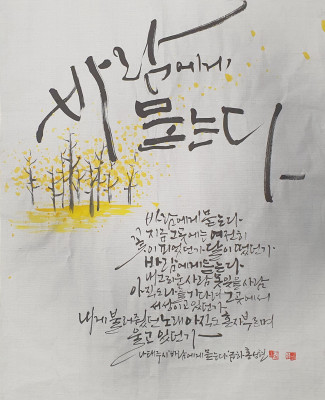 바람에게,
묻는다.
바람에게 묻는다
지금 그곳에는 여전히
꽃이 피었던가 달이 떴던가
바람에게 듣는다
내 그리운 사람 못 잊을 사람
아직도 나를 기다려 그곳에서
서성이고 있던가
내게 불러줬던 노래 아직도 혼자 부르며
울고 있던가
나태주시 바람에게 묻는다